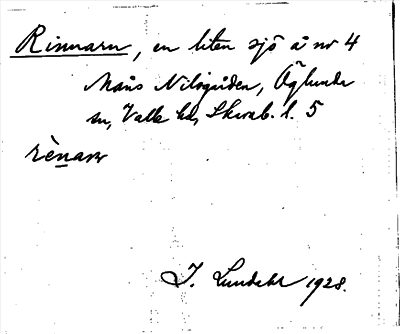 Rinnarn, en liten sjö å nr 4
Måns Nilsgården, Öglunda
sn, Valle hd, Skarab. l. 5
rènaṛ
J. Lundahl 1928.